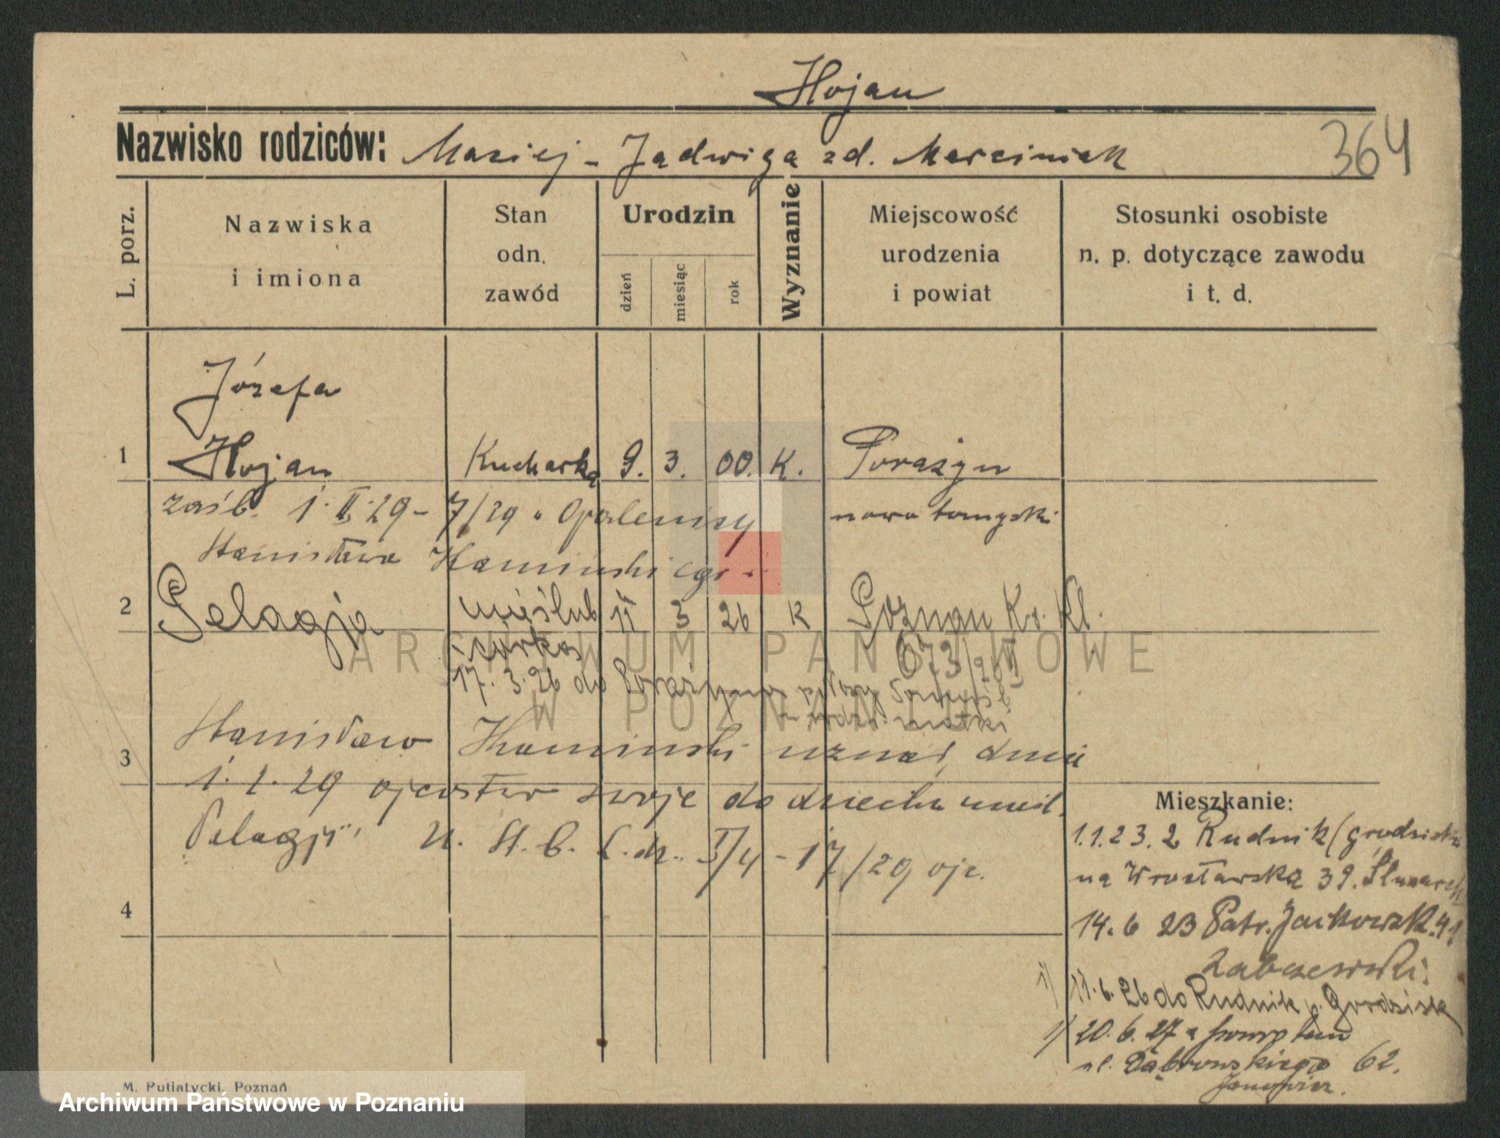 Hojan
Nazwisko rodziców: Maciej - Jadwiga zd. Marciniak
364
L. porz.
Nazwiska
i imiona
Stan
odn.
zawód
Urodzin
dzień
miesiąc
rok
Wyznanie
Miejscowość
urodzenia
i powiat
Stosunki osobiste
n. p. dotyczące zawodu
i t. d.
Józefa
1 Hojan Kucharka 9. 3. 00. K. Porażyn
zaśb. 1. II. 29 - 7/29 Opalenicy nowotomyski
Stanisława Kamińskiego
2 Pelagja nieślub 11 3 26 K Poznan Kr. Kl.
córka 673/26
17. 3. 26 do Porażyna
matki
3 Stanisław Kaminski uznał dnia
1. 2. 29 ojcostwo swoje do dziecka nieśl.
Pelagji U. St. C. L. dz. I/4 - 17/29 ojc.
4
Mieszkanie:
1.1.23. z Rudnik (grodzisk
na Wrocławską 39.
14. 6 23 Patr. Jackowsk. 41
11. 6. 26 do Rudnik p. Grodzisk
20. 6. 27 z powrotem
ul. Dąbrowskiego 62.
M. Putiatycki, Poznań
ARCHIWUM PAŃSTWOWE
W POZNANIU
Archiwum Państwowe w Poznaniu